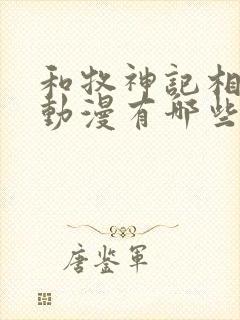 和牧神記相
動漫有哪些
唐鉴軍